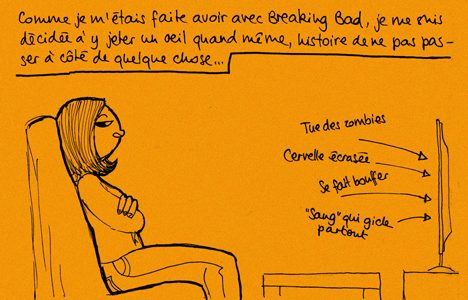 Comme je m'étais faite avoir avec Breaking Bad, je me suis
décidée à y jeter un œil quand même, histoire de ne pas pas-
ser à côté de quelque chose...
Tue des zombies
Cervelle écrasée
Se fait bouffer
"Sang" qui gicle
partout